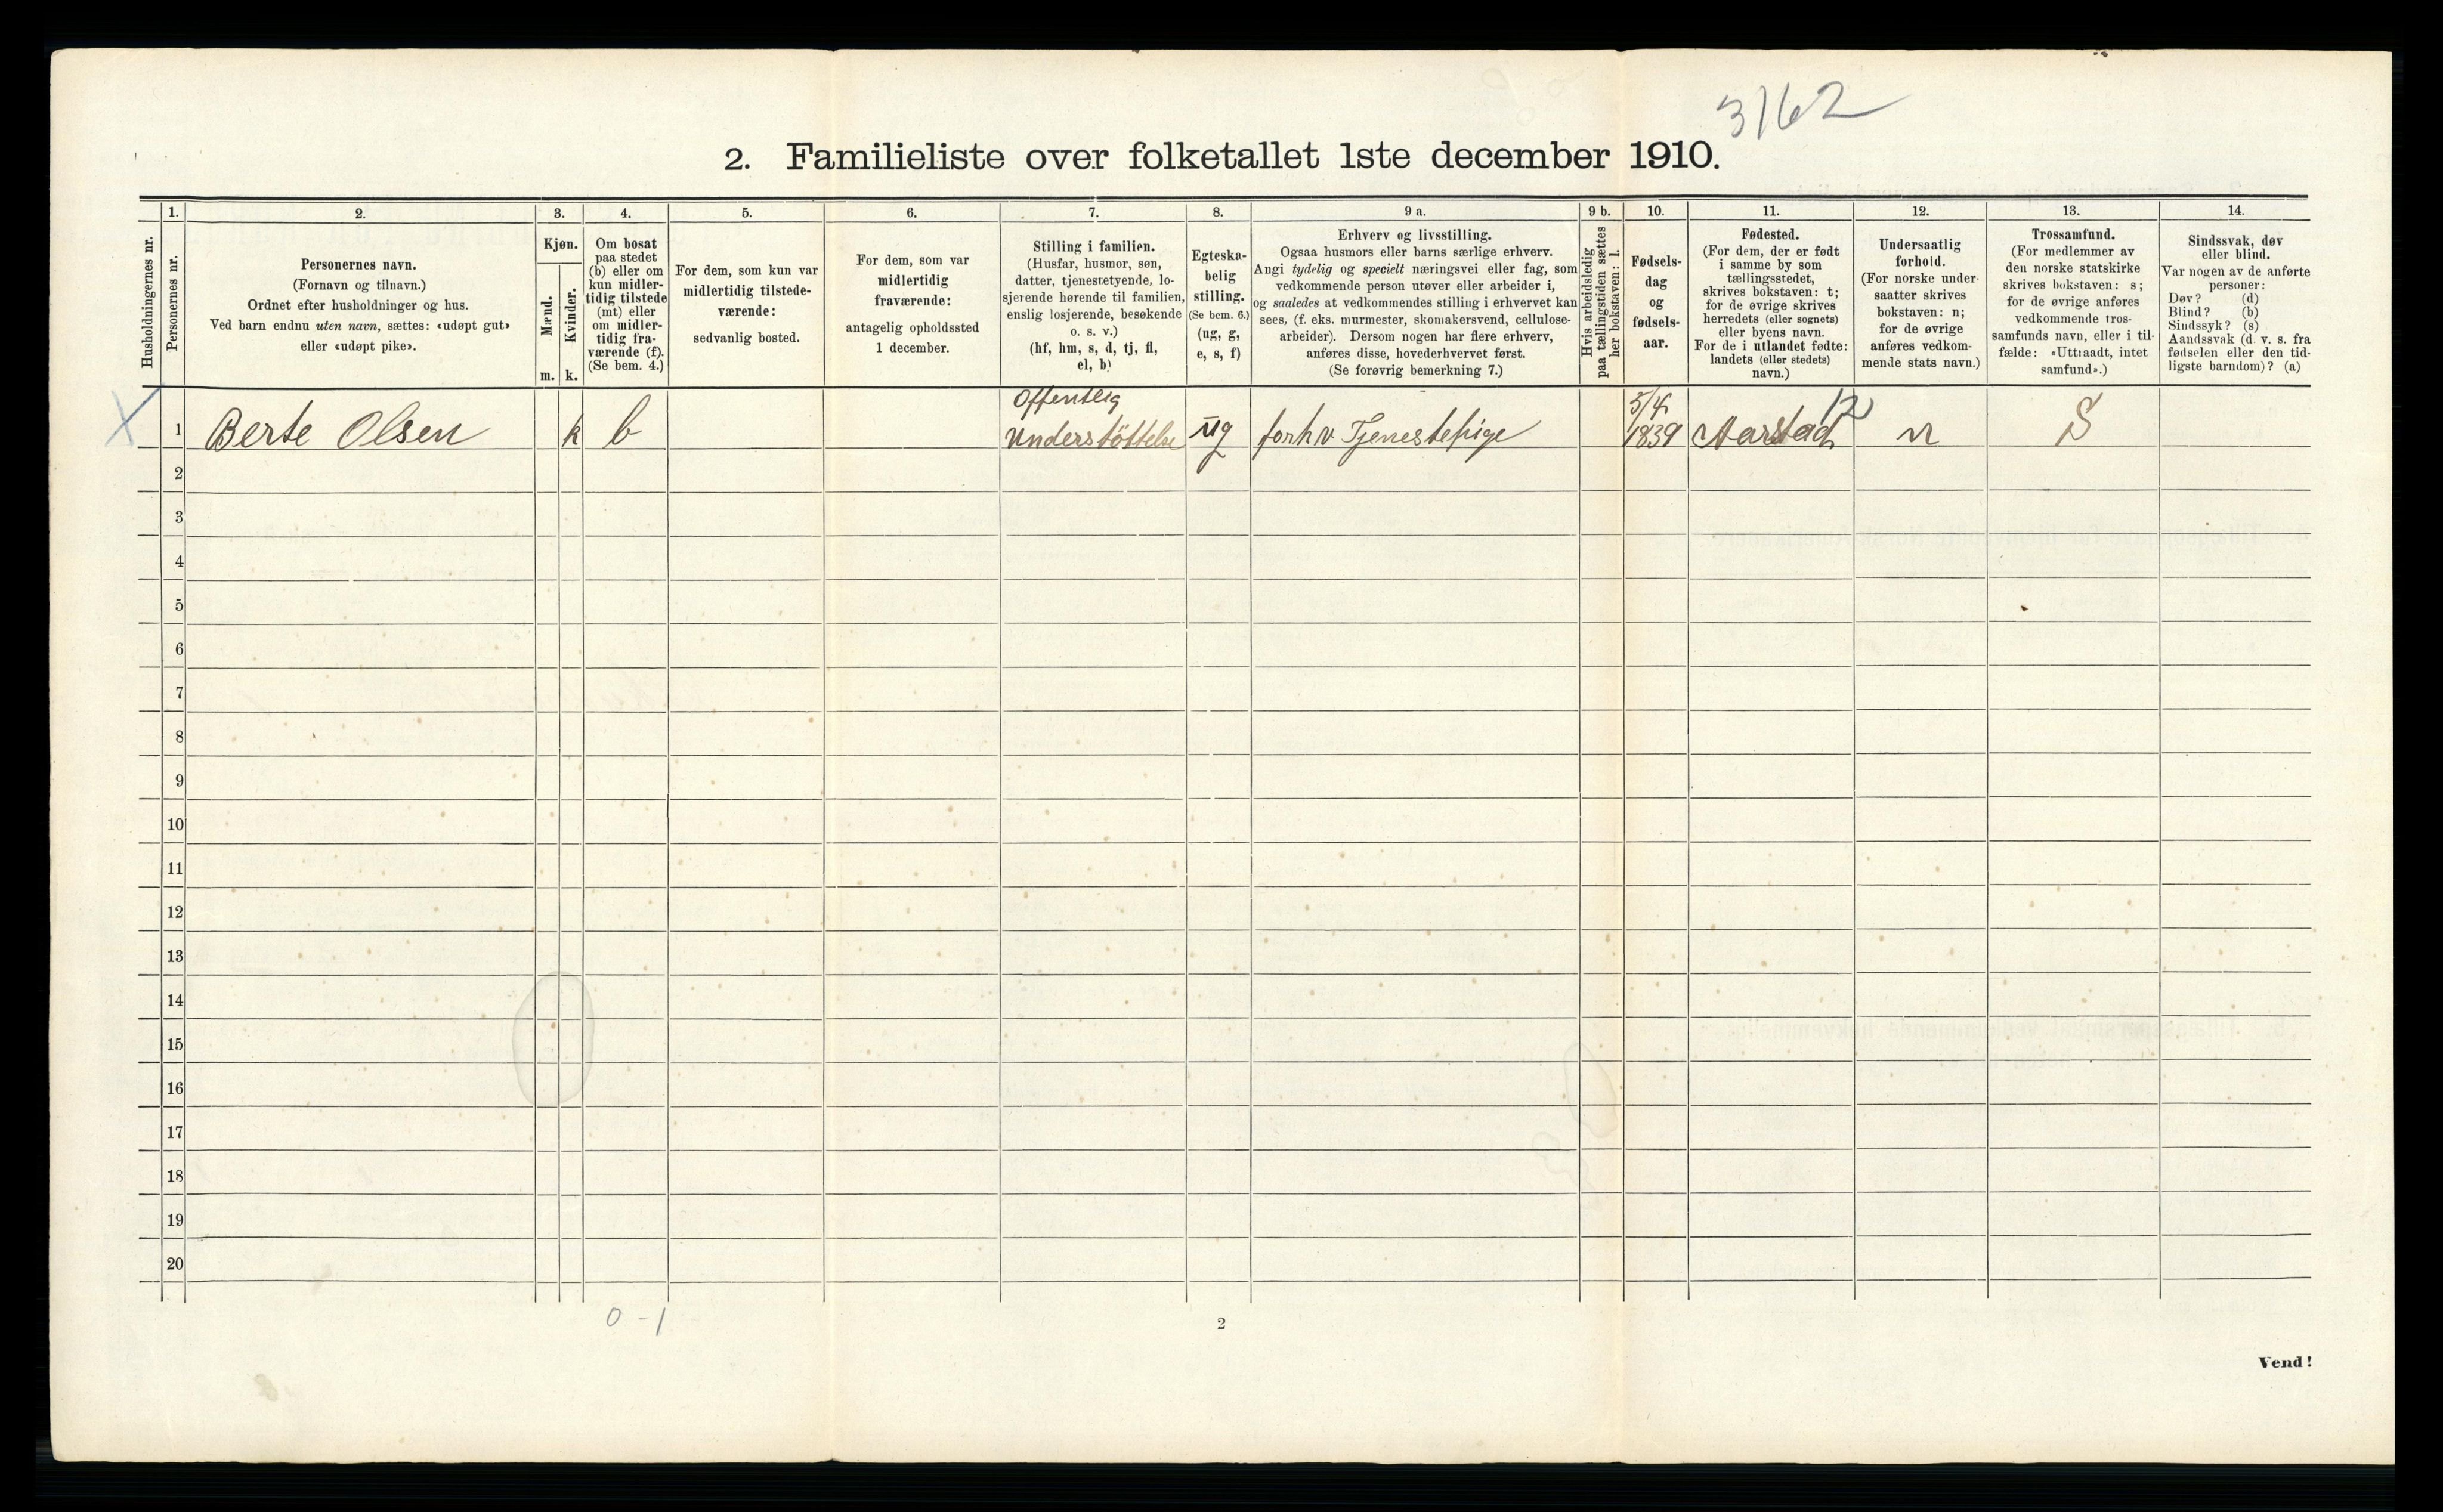 3162
2. Familieliste over folketallet 1ste december 1910.
Husholdningernes nr.
1.
Personernes nr.
2.
Personernes navn.
(Fornavn og tilnavn.)
Ordnet efter husholdninger og hus.
Ved barn endnu uten navn, sættes: «udøpt gut»
eller «udøpt pike».
3.
Kjøn.
Mænd.
Kvinder.
m. k.
4.
Om bosat
paa stedet
(b) eller om
kun midler-
tidig tilstede
(mt) eller
om midler-
tidig fra-
værende (f).
(Se bem. 4.)
5.
For dem, som kun var
midlertidig tilstede-
værende:
sedvanlig bosted.
6.
For dem, som var
midlertidig
fraværende:
antagelig opholdssted
1 december.
7.
Stilling i familien.
(Husfar, husmor, søn,
datter, tjenestetyende, lo-
sjerende hørende til familien,
enslig losjerende, besøkende
o. s. v.)
(hf, hm, s, d, tj, fl,
el, b)
8.
Egteska-
belig
stilling.
(Se bem. 6.)
(ug, g,
e, s, f)
9 a.
Erhverv og livsstilling.
Ogsaa husmors eller barns særlige erhverv.
Angi tydelig og specielt næringsvei eller fag, som
vedkommende person utøver eller arbeider i,
og saaledes at vedkommendes stilling i erhvervet kan
sees, (f. eks. murmester, skomakersvend, cellulose-
arbeider). Dersom nogen har flere erhverv,
anføres disse, hovederhvervet først.
(Se forøvrig bemerkning 7.)
9 b.
Hvis arbeidsledig
paa tællingstiden sættes
her bokstaven: l.
10.
Fødsels-
dag
og
fødsels-
aar.
11.
Fødested.
(For dem, der er født
i samme by som
tællingsstedet,
skrives bokstaven: t;
for de øvrige skrives
herredets (eller sognets)
eller byens navn.
For de i utlandet fødte:
landets (eller stedets)
navn.)
12.
Undersaatlig
forhold.
(For norske under-
saatter skrives
bokstaven: n;
for de øvrige
anføres vedkom-
mende stats navn.)
13.
Trossamfund.
(For medlemmer av
den norske statskirke
skrives bokstaven: s;
for de øvrige anføres
vedkommende tros-
samfunds navn, eller i til-
fælde: «Uttraadt, intet
samfund».)
14.
Sindssvak, døv
eller blind.
Var nogen av de anførte
personer:
Døv? (d)
Blind? (b)
Sindssyk? (s)
Aandssvak (d. v. s. fra
fødselen eller den tid-
ligste barndom)? (a)
Offentlig 5/4 12
X 1 Berte Olsen k b Understöttelse ug forhv Tjenestepige 1839 Aarstad n S
2
3
4
5
6
7
8
9
10
11
12
13
14
15
16
17
18
19
20
0 - 1
2
Vend!